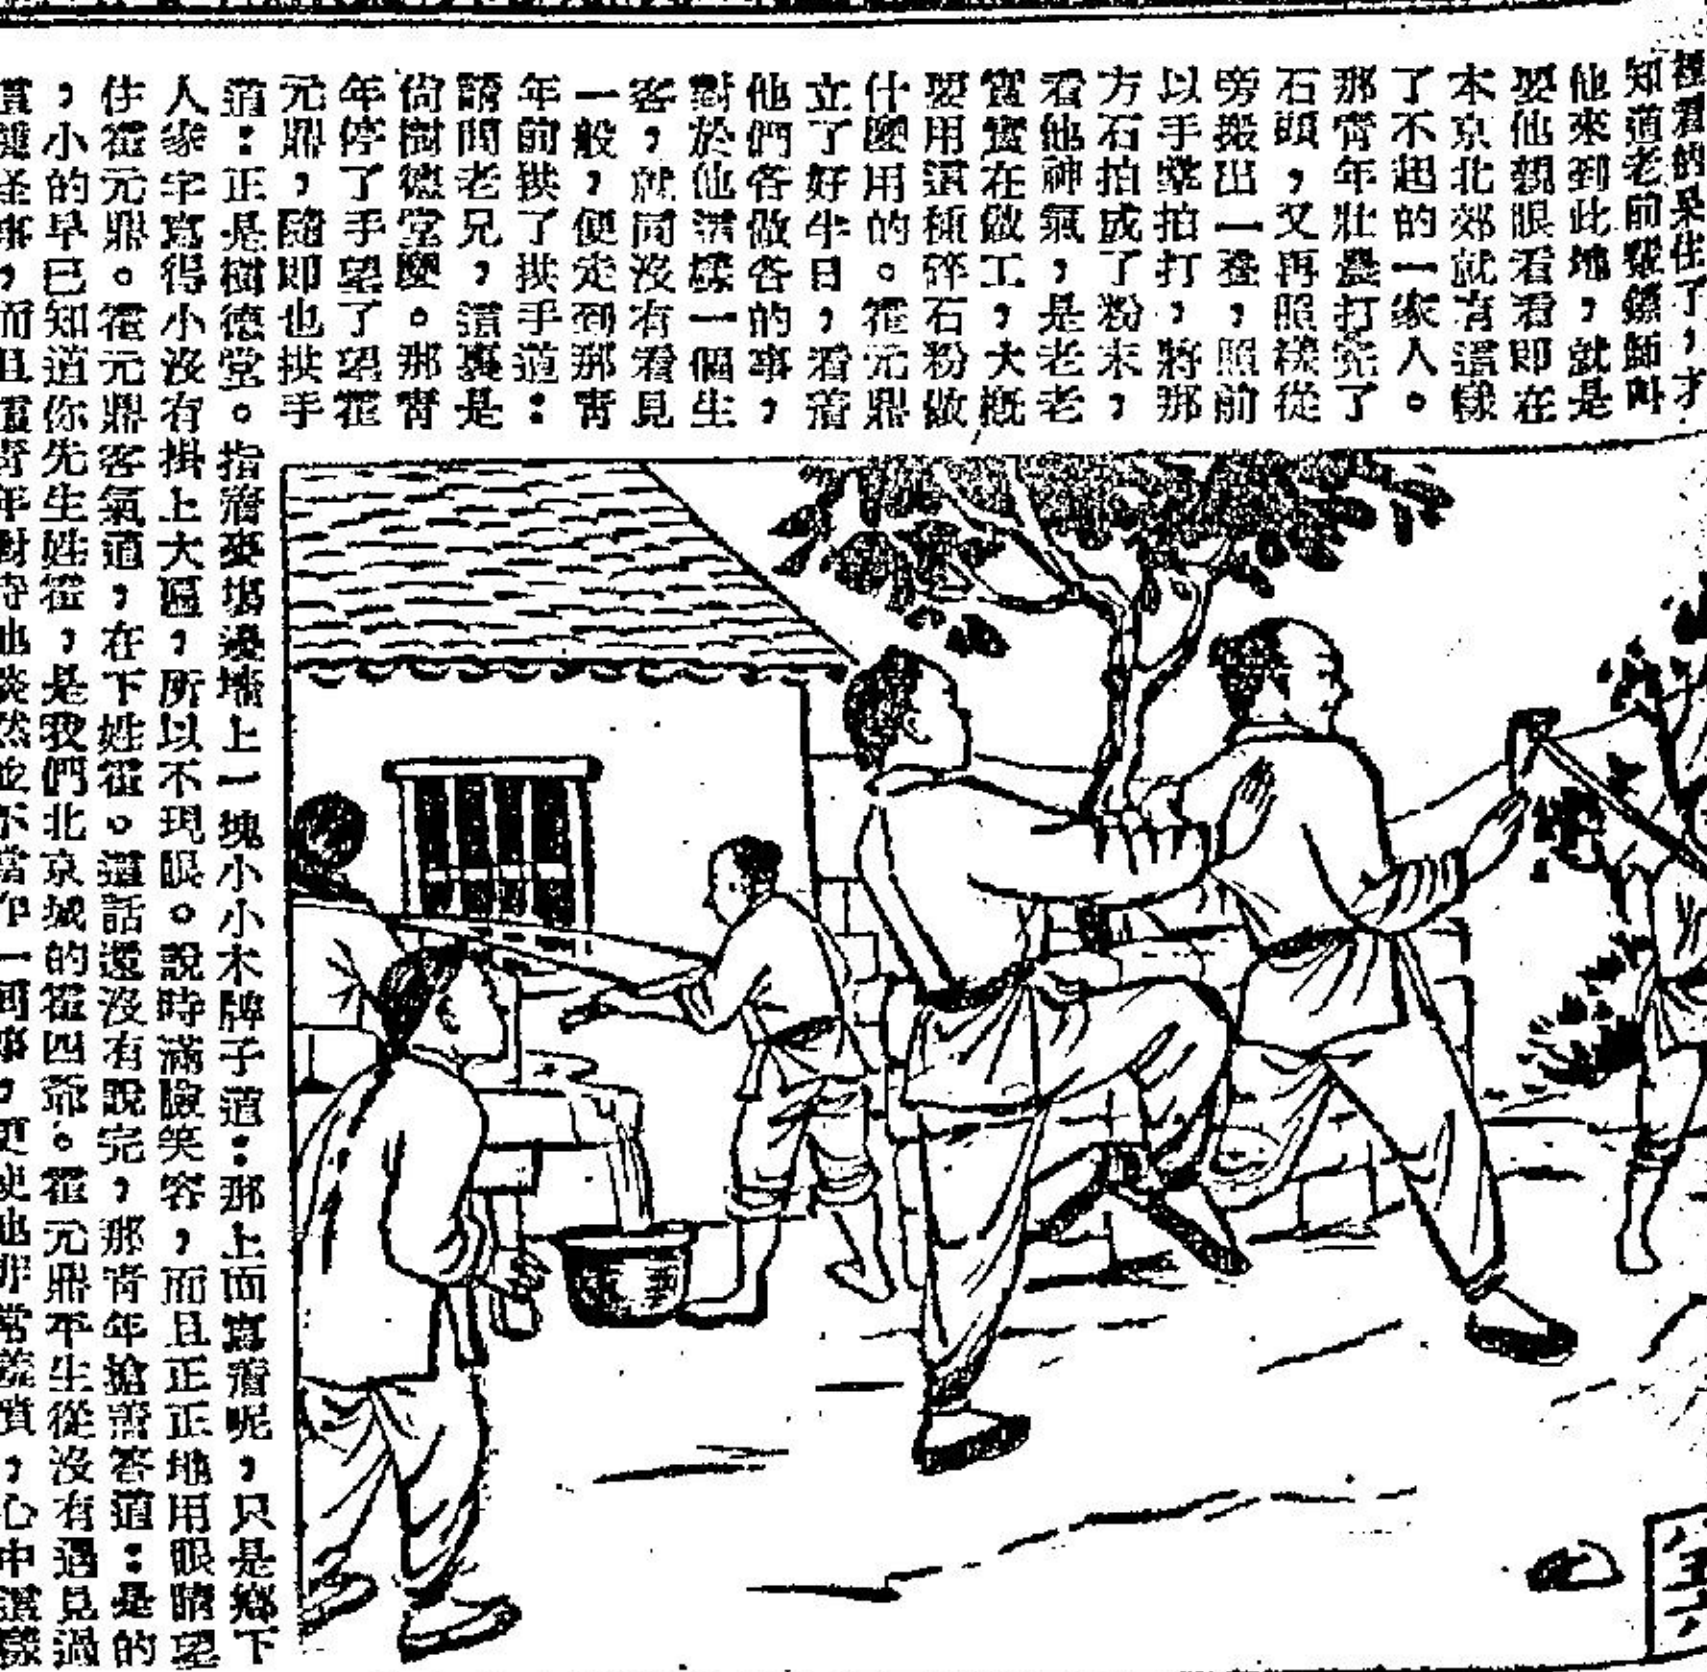 裡看的呆住了，才
知道老前輩鏢師叫
他來到此地，就是
要他親眼看看即在
本京北郊就有這樣
了不起的一家人。
那青年壯農打完了
石頭，又再照樣從
旁搬出一叠，照前
以手擊拍打，將那
方石拍成了粉末，
看他神氣，是老老
實實在做工，大概
要用這種碎石粉做
什麼用的。霍元鼎
立了好半日，看着
他們各做各的事，
對於他這樣一個生
客，就同沒有看見
一般，便走到那青
年前拱了拱手道：
請問老兄，這裏是
尙樹德堂麼。那青
年停了手望了望霍
元鼎，隨即也拱手
道：正是樹德堂。指着麥場邊墻上一塊小小木牌子道：那上面寫着呢，只是鄉下
人家字寫得小沒有掛上大匾，所以不現眼。說時滿臉笑容，而且正正地用眼睛望
住霍元鼎。霍元鼎客氣道，在下姓霍。這話還沒有說完，那青年搶着答道：是的
，小的早已知道你先生姓霍，是我們北京城的霍四爺。霍元鼎平生從沒有遇見過
這種怪事，而且這青年對待他淡然並不當作一回事，更使他非常羨慎，心中這樣